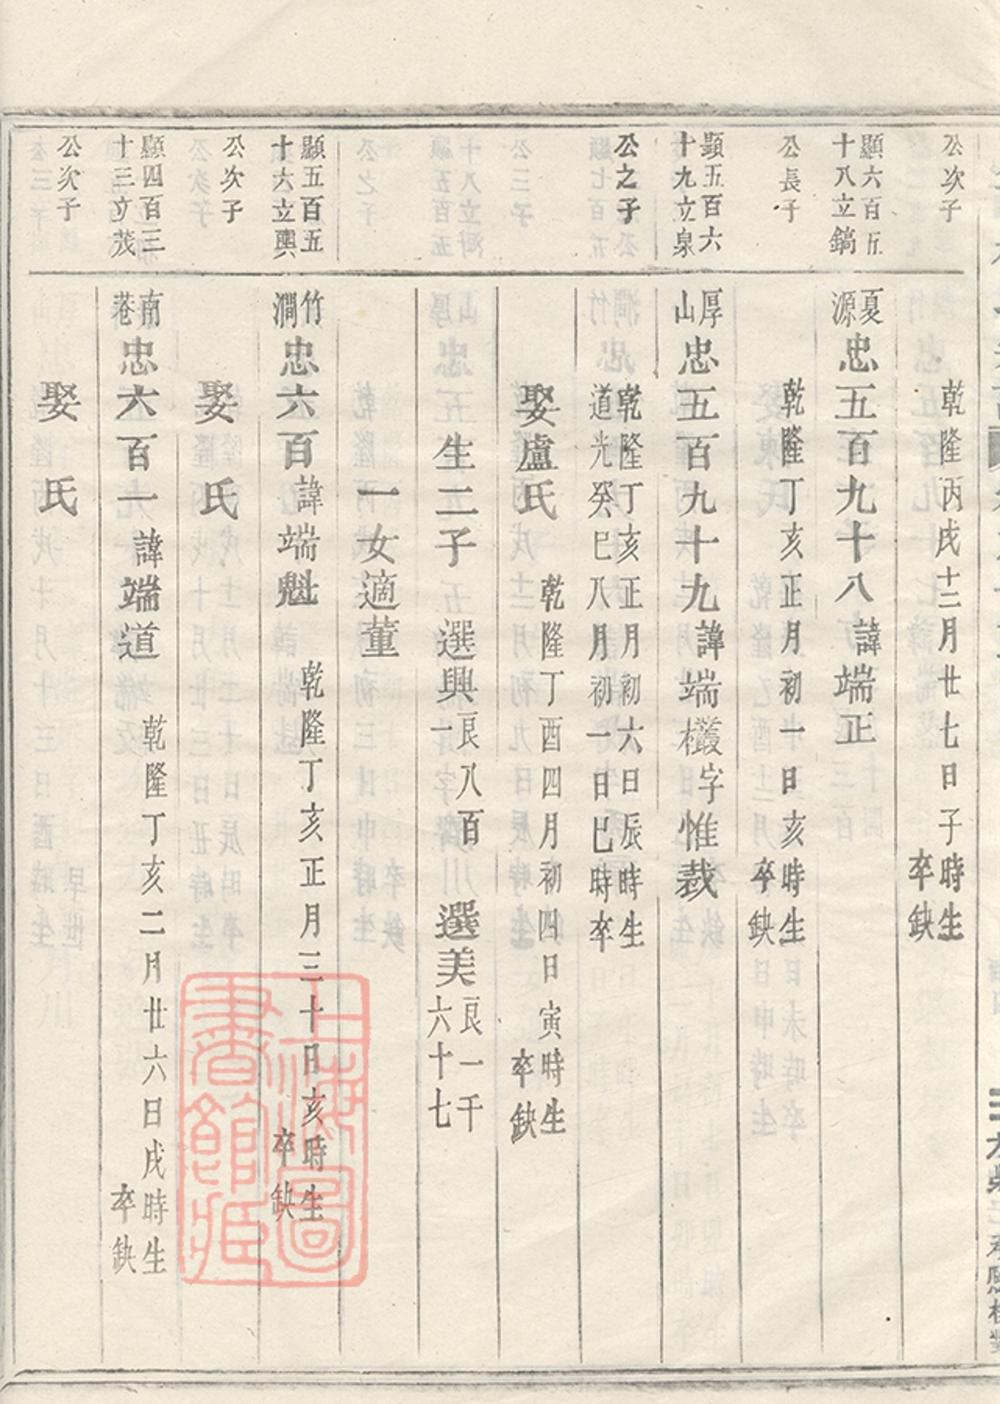 公次子
乾隆丙戌十二月廿七日子時生
卒缺
顯六百五
十八立鎬
夏源
忠五百九十八諱端正
公長子
乾隆丁亥正月初一日亥時生
卒缺
顯五百六
十九立泉
厚山
忠五百九十九諱端欉字惟裁
公之子
乾隆丁亥正月初六日辰時生
道光癸巳八月初一日巳時卒
娶盧氏
乾隆丁酉四月初四日寅時生
卒缺
生二子 選興
良八百
一
選美
良一千
六十七
一女適董
顯五百五
十六立輿
竹澗
忠六百諱端魁
乾隆丁亥正月三十日亥時生
卒缺
公次子
娶 氏
顯四百三
十三立茂
南巷
忠六百一諱端道
乾隆丁亥二月廿六日戌時生
卒缺
公次子
娶 氏
上海圖
書館藏